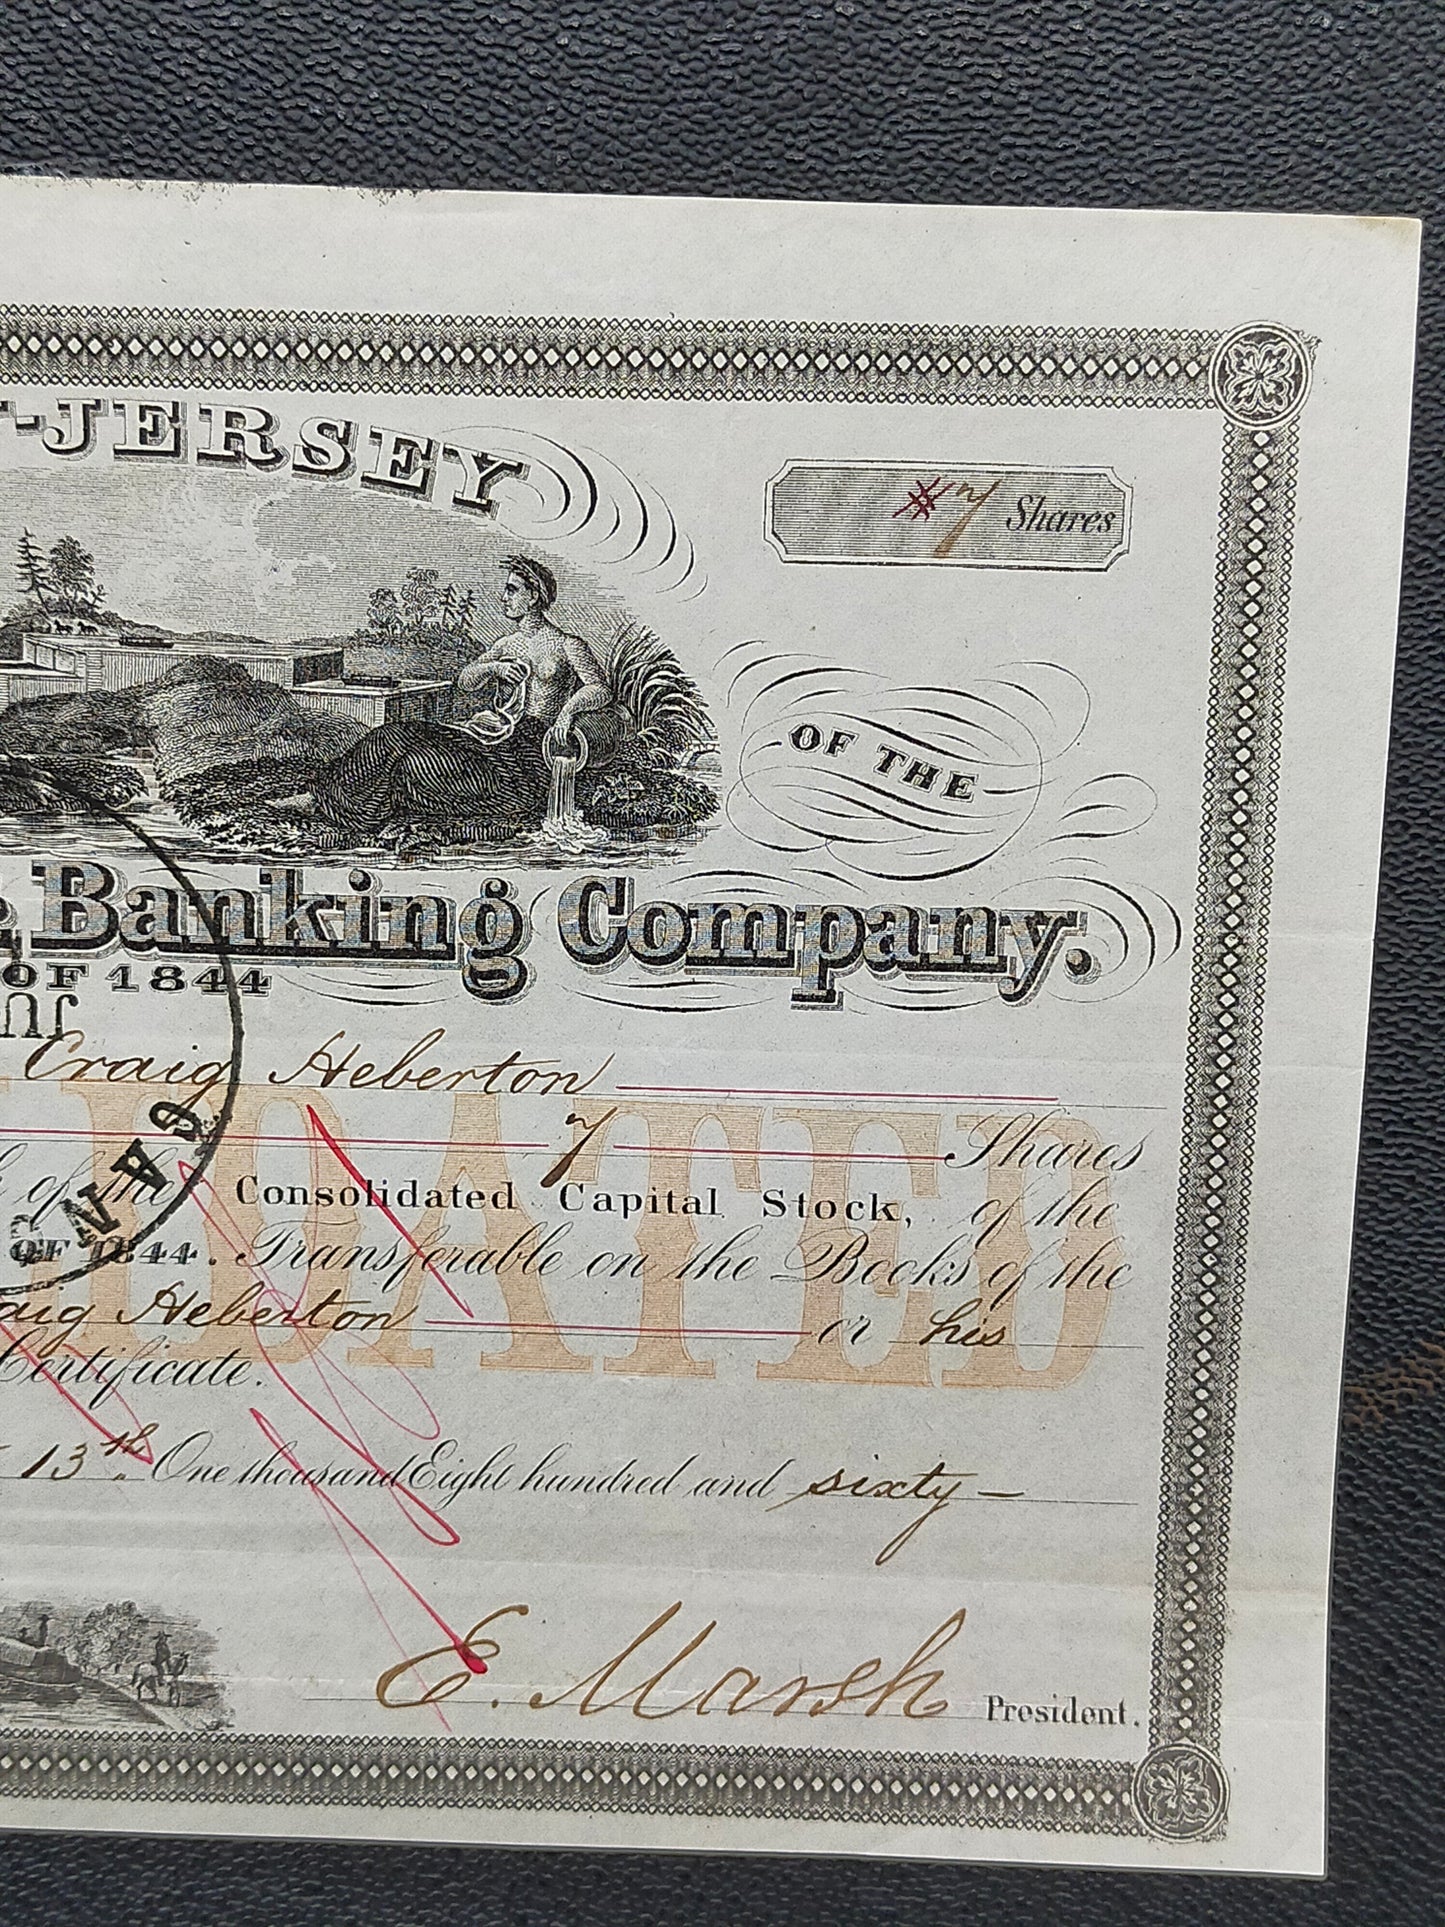 -JERSEY
# 7 Shares
OF THE
& Banking Company.
OF 1844
Craig Heberton
7 Shares
of the Consolidated Capital Stock, of the
OF 1844. Transferable on the Books of the
raig Heberton or his
Certificate.
13th. One thousand Eight hundred and sixty —
E. Marsh President.